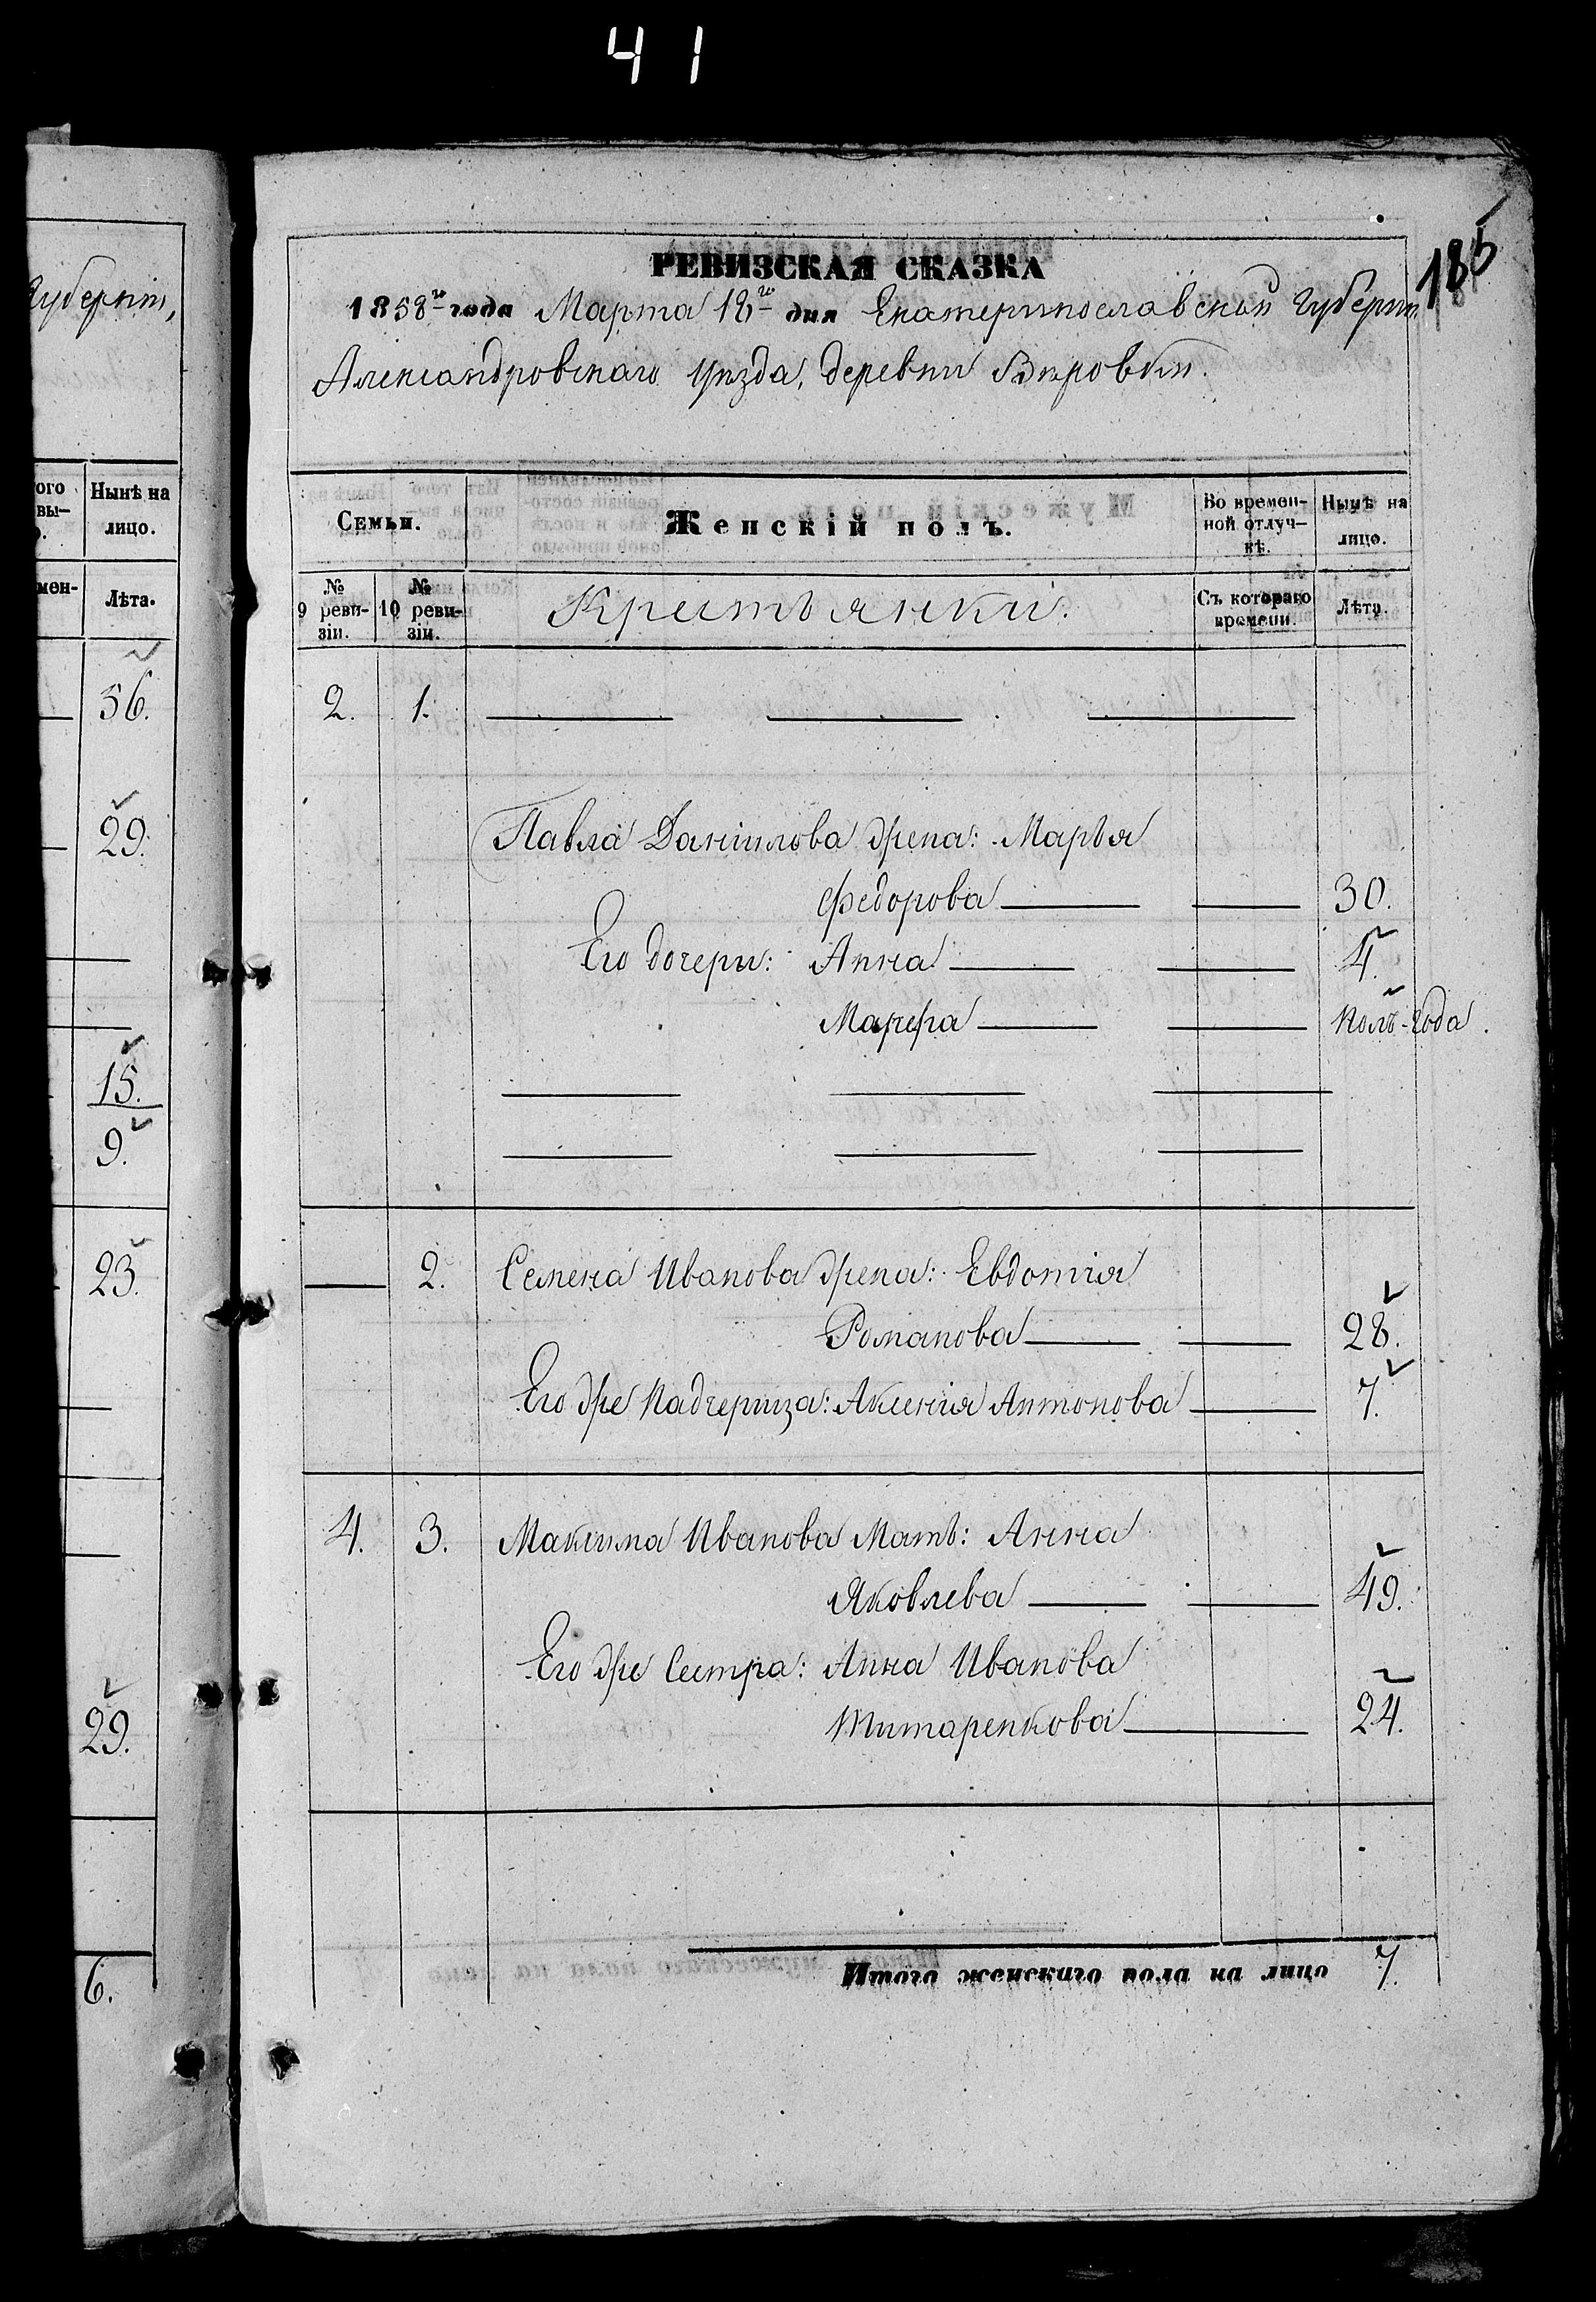 41
185
Губерніи,
ого
вы-
Нынѣ на
лицо.
мен-
Лѣта.
56.
29.
15.
9.
23.
29.
6.
РЕВИЗСКАЯ СКАЗКА
1858го года Марта 18го дня Екатеринославской Губерніи
Александровскаго Уѣзда, деревни
Семьи.
Женскій полъ.
Во времен-
ной отлуч-
кѣ.
Нынѣ на
лицо.
№
9 реви-
зіи.
№
10 реви-
зіи.
Крестьянки.
Съ котораго
времени.
Лѣта.
2. 1.
Павла Даніилова жена: Марья
Федорова 30.
Его дочери: Анна 4.
Марфа полъ-года.
2. Семена Иванова жена: Евдотія
Романова 28.
Его же Падчерица: Аксенія Антонова 7.
4. 3. Максима Иванова Мать: Анна
Яковлева 49.
Его же Сестра: Анна Иванова
Титаренкова 24.
Итого женскаго пола на лицо 7.